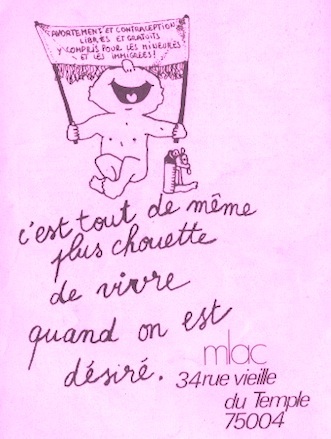 AVORTEMENT ET CONTRACEPTION
LIBRES ET GRATUITS
Y COMPRIS POUR LES MINEURES
ET LES IMMIGRÉES!
c'est tout de même
plus chouette
de vivre
quand on est
désiré.
mlac
34 rue vieille
du Temple
75004